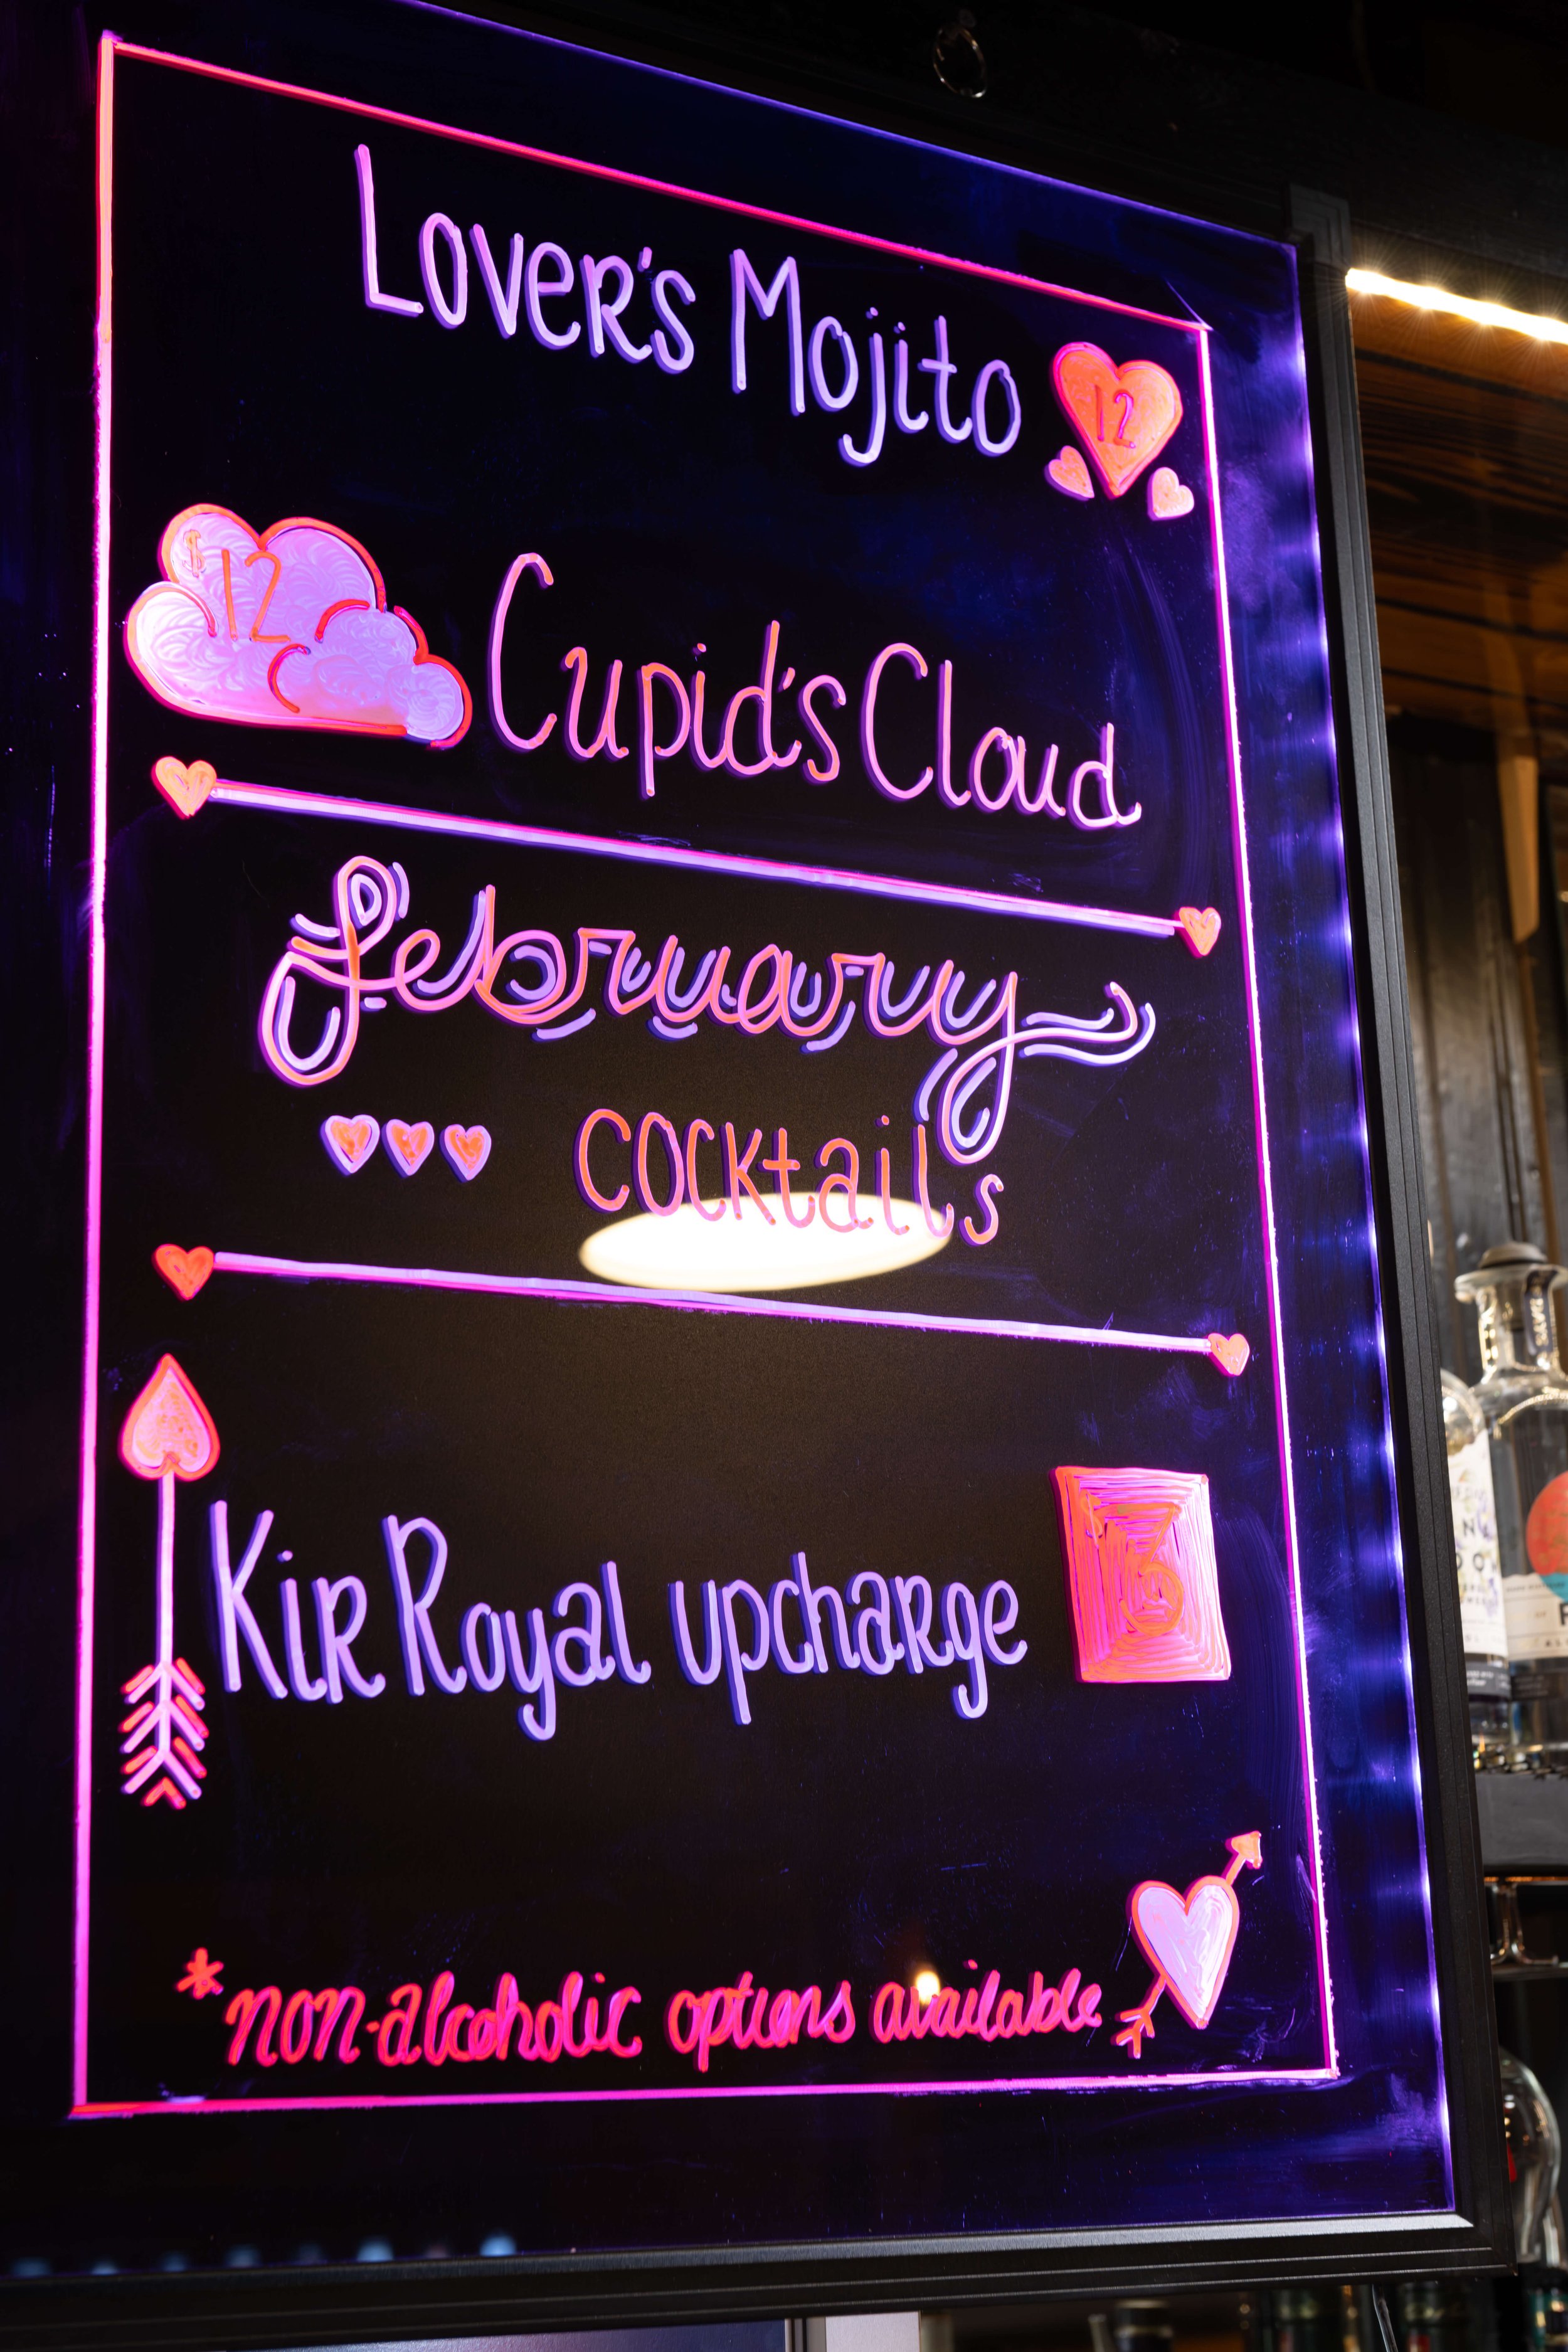 Lover's Mojito 12
$12 Cupid's Cloud
february
cocktails
Kir Royal upcharge $3
*non-alcoholic options available